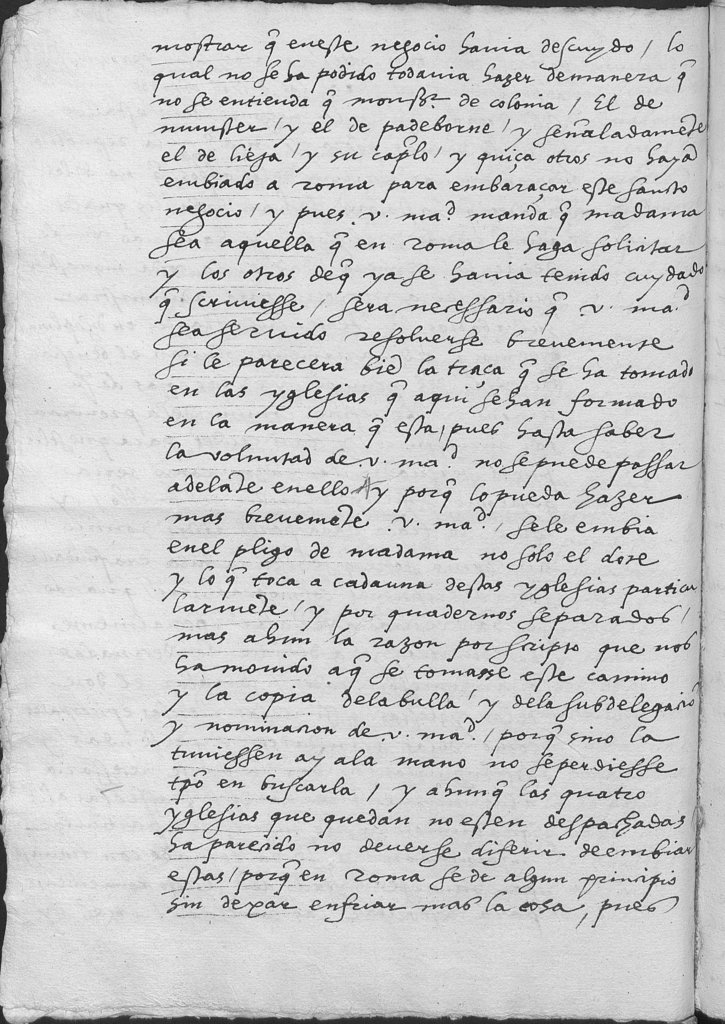 mostrar q̃ en este negocio havia descuydo / lo
qual no se ha podido todavia hazer de manera q̃
no se entienda q̃ monsr de colonia / El de
munster / y el de padeborne / y señaladamēte
el de lieja / y su caplo / y quiça otros no hayā
embiado a roma para embaraçar este sancto
negocio / y pues .v. mad. manda q̃ madama
sea aquella q̃ en roma le haga solicitar
y los otros deq̃ ya se havia tenido cuydado
q̃ scriviesse / sera necessario q̃ .v. mad
sea servido resolverse brevemente
si le parecera biē la traça q̃ se ha tomado
en las yglesias q̃ aqui se han formado
en la manera q̃ esta, pues hasta saber
la voluntad de .v. mad. no se puede passar
adelāte en ello / y porq̃ lo pueda hazer
mas brevemēte .v. mad. / se le embia
enel pligo de madama no solo el dote
y lo q̃ toca a cadauna destas yglesias particu
larmēte / y por quadernos separados /
mas ahun la razon por scripto que nos
ha movido aq̃ se tomasse este camino
y la copia dela bulla / y dela subdelegaciō
y nominacion de .v. mad. / porq̃ sino la
tuviessen ay ala mano no se perdiesse
tpō en buscarla / y ahunq̃ las quatro
yglesias que quedan no esten despachadas
ha parecido no deverse diferir de embiar
estas / porq̃ en roma se de algun principio
sin dexar enfriar mas la cosa, pues